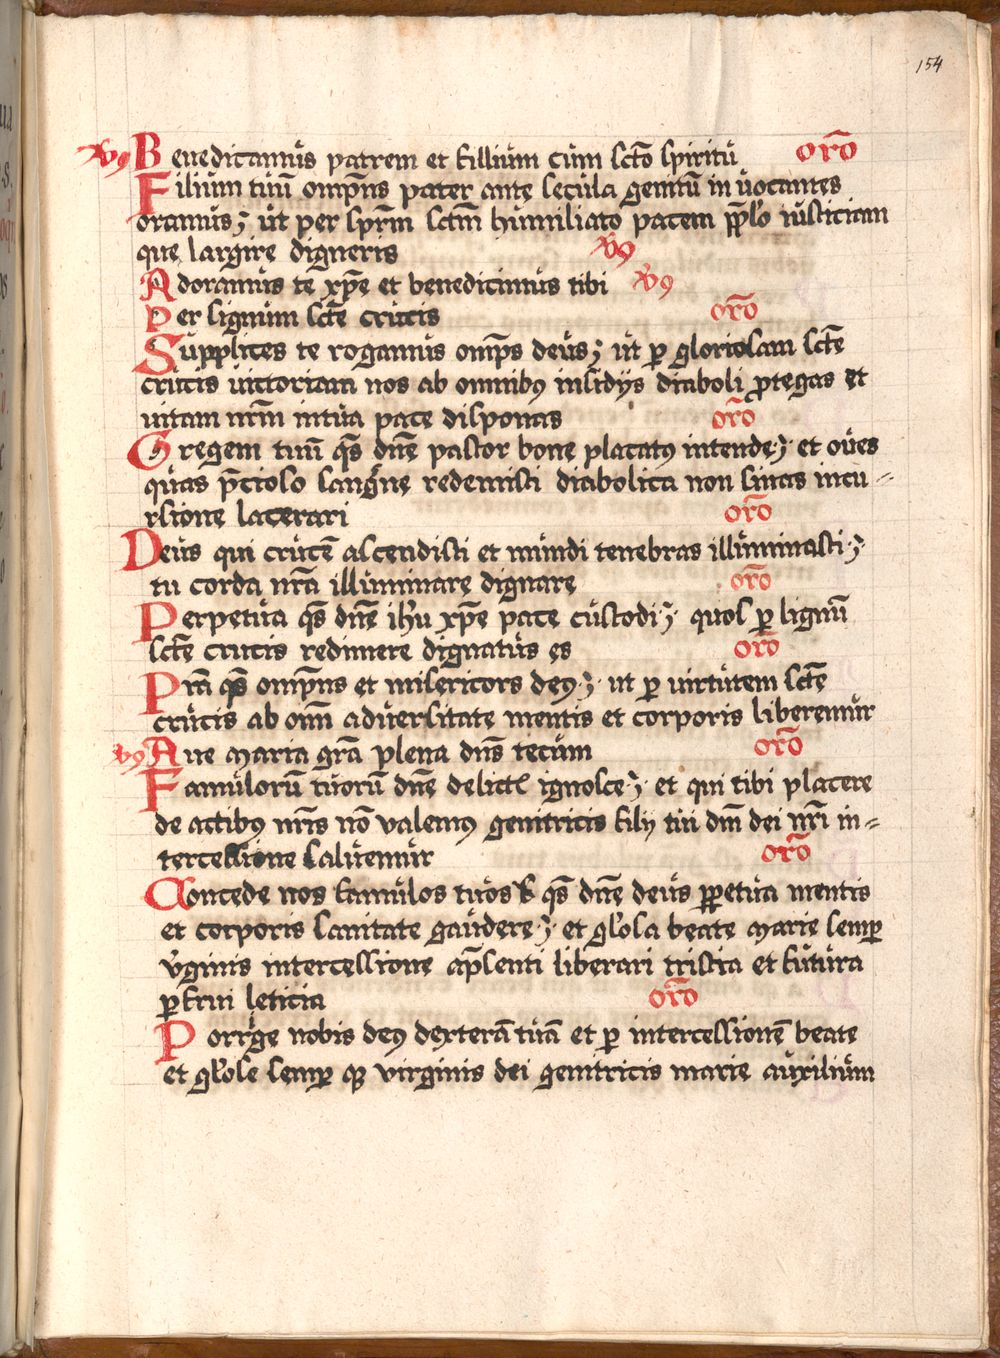 154
v9 Benedicamus patrem et fillium cum scto spiritu orō
Filium tuū omp̄ns pater ante secula genitū in vocantes
oramus; ut per sp̄rm sctm̄ humiliato pacem pplo iusticiam
que largire digneris v9
Adoramus te xp̄e et benedicimus tibi v9
Per signum sctē crucis orō
Supplices te rogamus omp̄s deus; ut p gloriosam sctē
crucis victoriam nos ab omnibus insidijs diaboli ꝓtegas et
vitam nrm̄ intua pace disponas orō
Gregem tuū q̄s dn̄e pastor bone placatus intende; et oues
quas p̄cioso sangn̄e redemisti diabolica non sinas incu-
rsione lacerari orō
Deus qui crucē ascendisti et mundi tenebras illuminasti;
tu corda nr̄a illuminare dignare orō
Perpetua q̄s dn̄e ihu xp̄e pace custodi; quos ꝑ lignū
sctē crucis redimere dignatus es orō
Pm̄ q̄s omp̄ns et misericors deus; ut ꝑ virtutem sctē
crucis ab omī aduersitate mentis et corporis liberemur
v9 Aue maria grā plena dn̄s tecum orō
Famulorū tuorū dn̄e delict ignosce; et qui tibi placere
de actibus nr̄is nō valemus genitricis filij tui dm̄ dei nr̄i in-
tercessione saluemur orō
Concede nos famulos tuos q̄s dn̄e deus ꝑpetua mentis
et corporis sanitate gaudere; et glosa beate marie semꝑ
vginis intercessione ap̄senti liberari tristia et futura
ꝑfrui leticia orō
Porrige nobis deus dexterā tuā et ꝑ intercessionē beate
et glose semꝑ que virginis dei genitricis marie auxilium